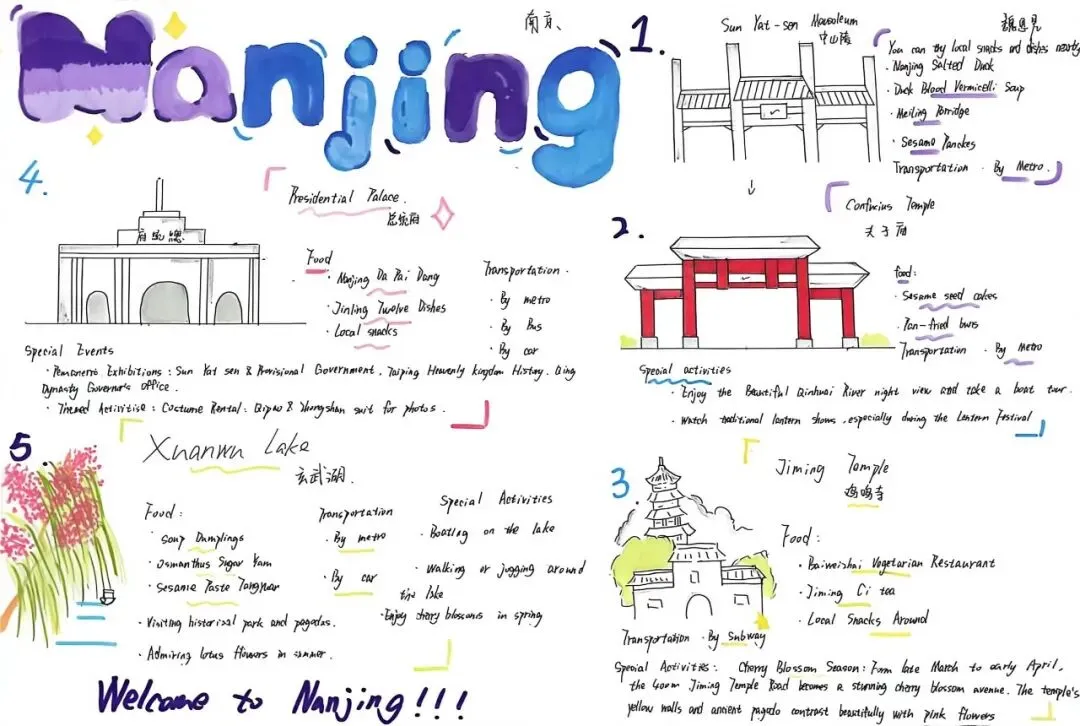 Nanjing
南京
1.
Sun Yat-sen Mausoleum
中山陵
You can try local snacks and dishes nearby
· Nanjing Salted Duck
· Duck Blood Vermicelli Soup
· Meiling Porridge
· Sesame Panckes
Transportation · By Metro.
2.
Confucius Temple
夫子庙
food:
· Sesame seed cakes
· Pan-fried buns
Transportation · By Metro
Special activities
· Enjoy the Beautiful Qinhuai River night view and take a boat tour.
· Watch traditional lantern shows, especially during the Lantern Festival
3.
Jiming Temple
鸡鸣寺
Food:
· Baiweizhai Vegetarian Restaurant
· Jiming Ci tea
· Local Snacks Around
Transportation · By Subway
Special Activities: Cherry Blossom Season: Form late March to early April,
the 400m Jiming Temple Road becomes a stunning cherry blossom avenue. The temple's
yellow walls and ancient pagoda contrast beautifully with pink flowers
4.
Presidential Palace.
总统府
府統總
Food
· Nanjing Da Pai Dang
· Jinling Twelve Dishes
· Local snacks
Transportation ·
· By metro
· By Bus
· By car
Special Events
· Pemanents Exhibitions: Sun Yat sen & Provisional Government, Taiping Heavenly kingdom History, Qing
Dynasty Governor's office.
· Themed Activitise: Costume Rental: Qipao & Zhongshan suit for photos.
5.
Xuanwu Lake
玄武湖
Food:
· Soup Dumplings
· Osmanthus Sugar Yam
· Sesame Paste Tangyuan
Transportation
· By metro
· By car
Special Activities
· Boating on the lake
· Walking or jogging around
the lake
· Enjoy cherry blossoms in spring
· Visiting historical park and pagodas.
· Admiring lotus flowers in summer.
Welcome to Nanjing!!!